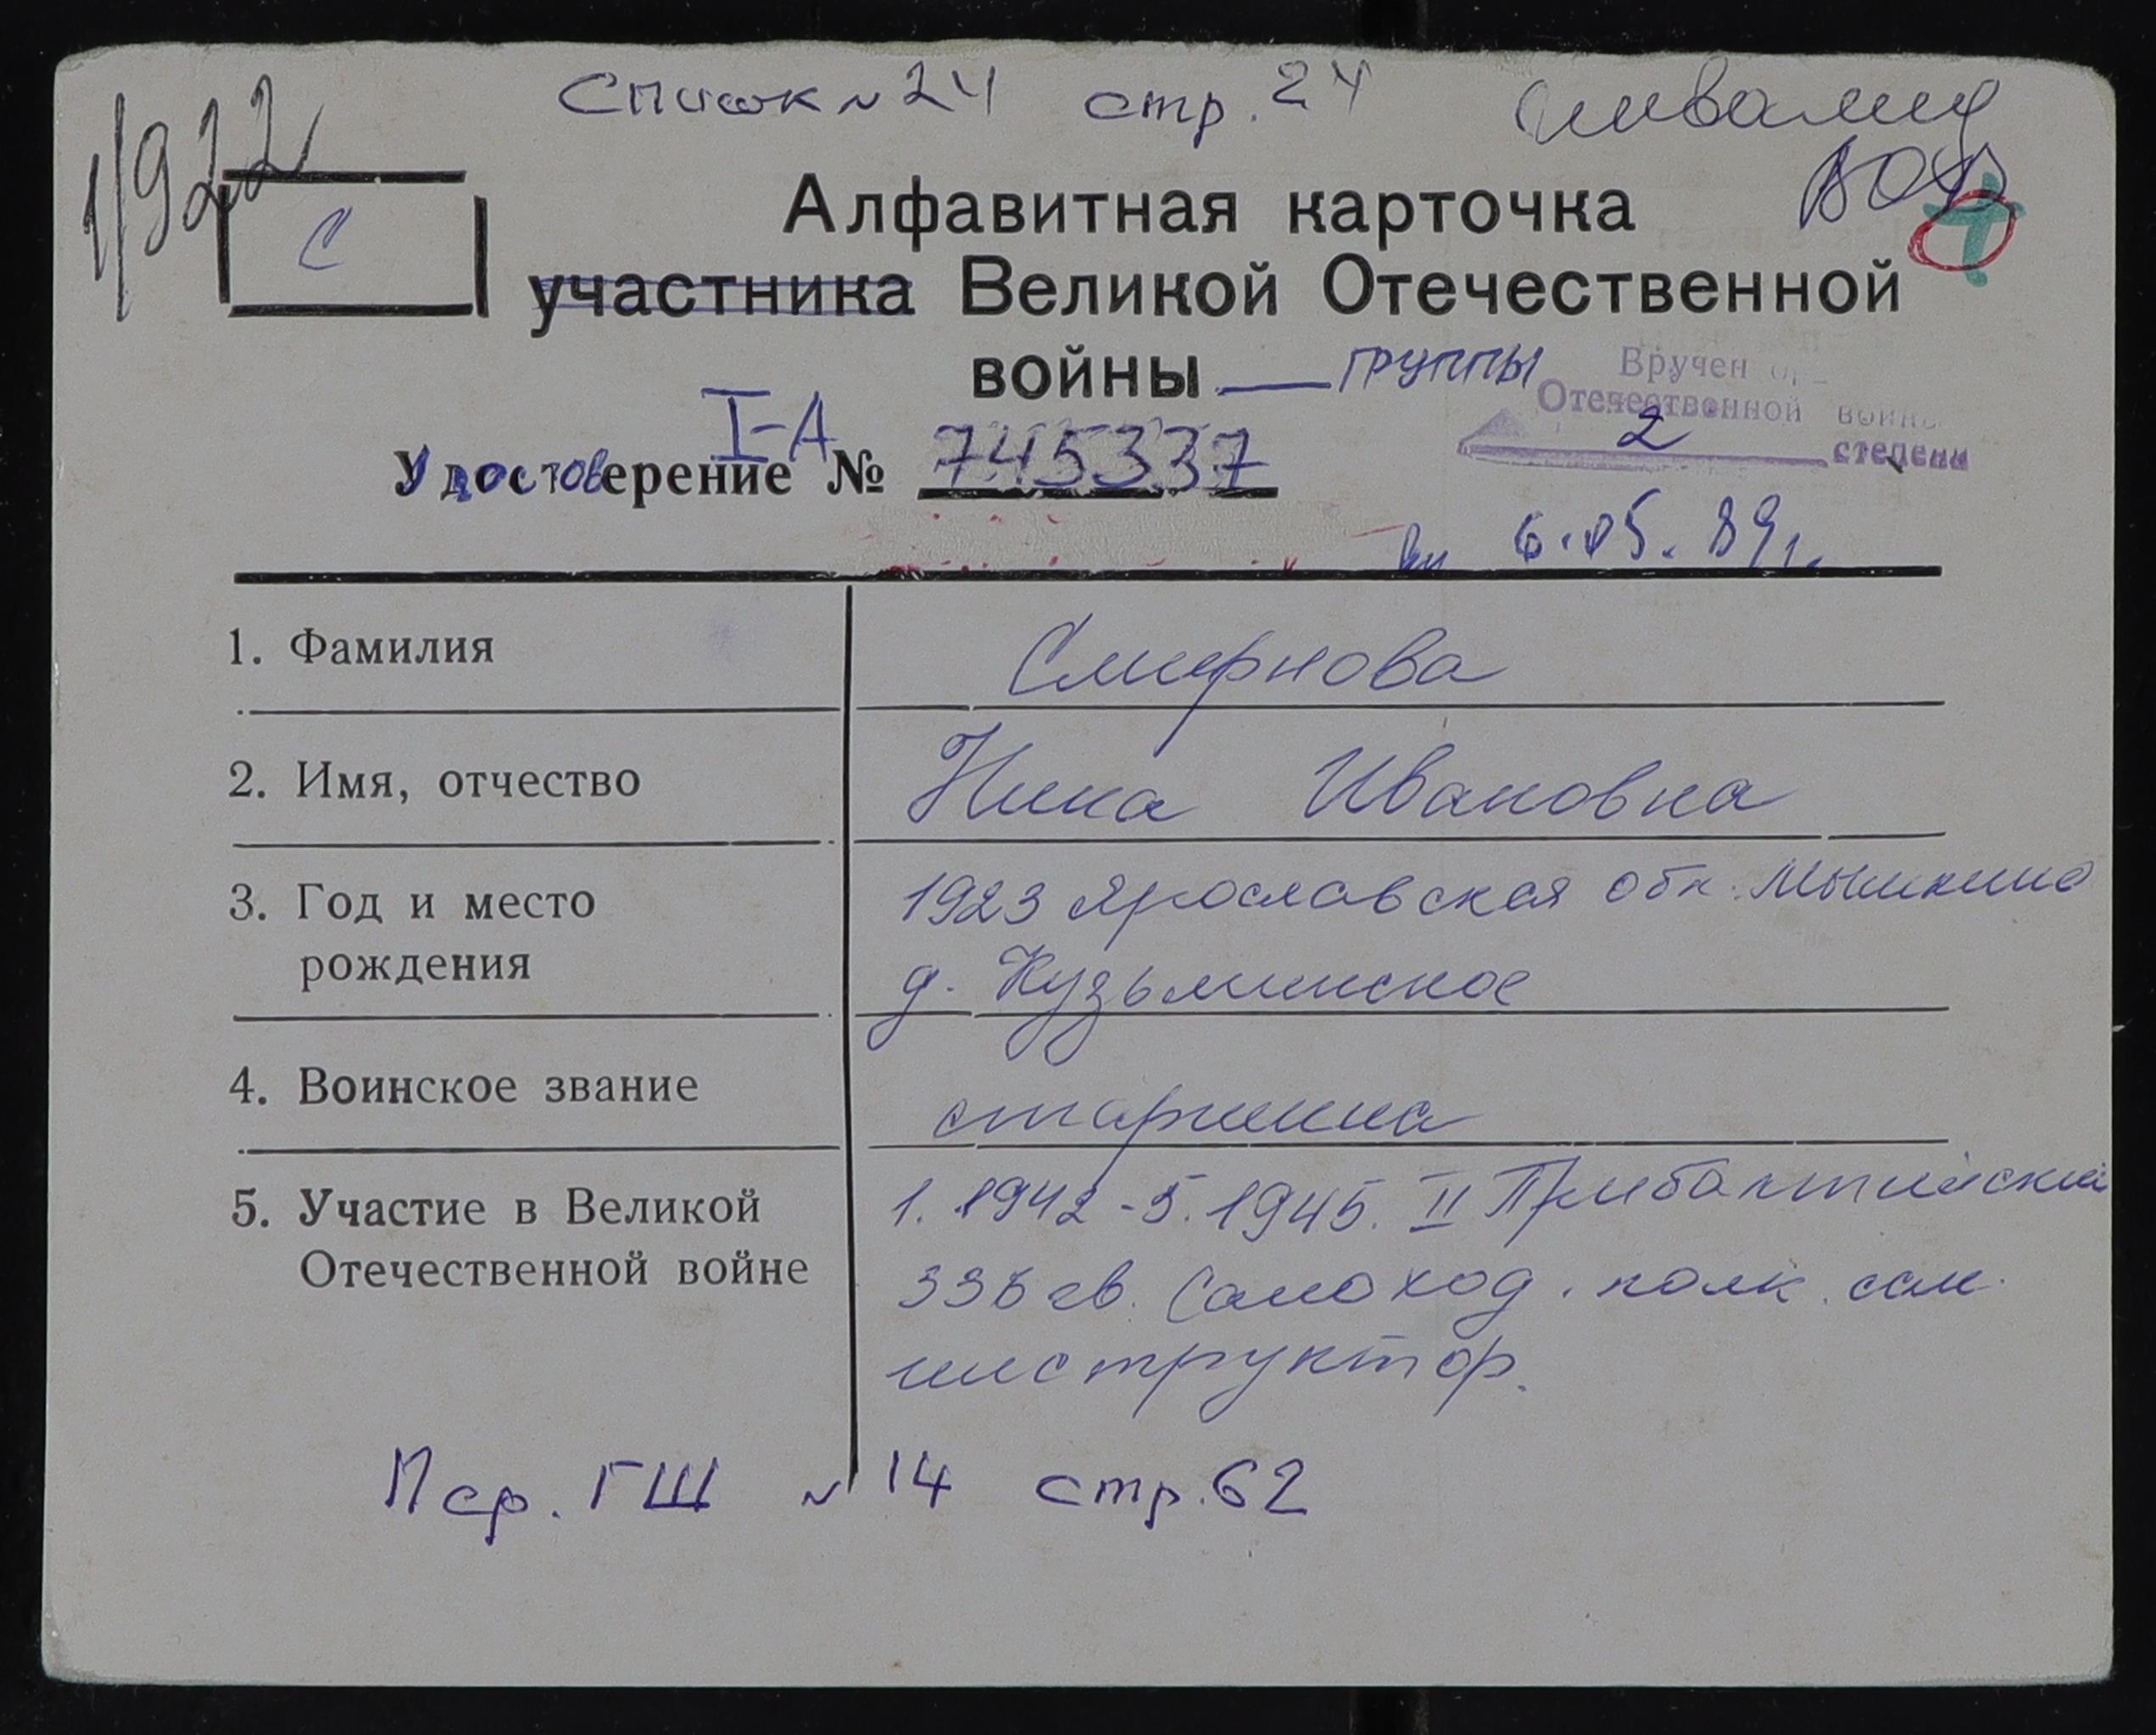 1/922
Список № 24 стр. 24 Инвалид
ВОВ
С
Алфавитная карточка
участника Великой Отечественной
войны — группы
Вручен
Отечественной войны
2 степени
I-А
Удостоверение № 745337
6.05.89г.
1. Фамилия Смирнова
2. Имя, отчество Нина Ивановна
3. Год и место 1923 Ярославская обл. Мышкино
рождения д. Кузьминское
4. Воинское звание старшина
5. Участие в Великой 1.1942-5.1945. II Прибалтийский
Отечественной войне 336 гв. Самоход. полк. сан.
инструктор.
Пер. ГШ № 14 стр. 62